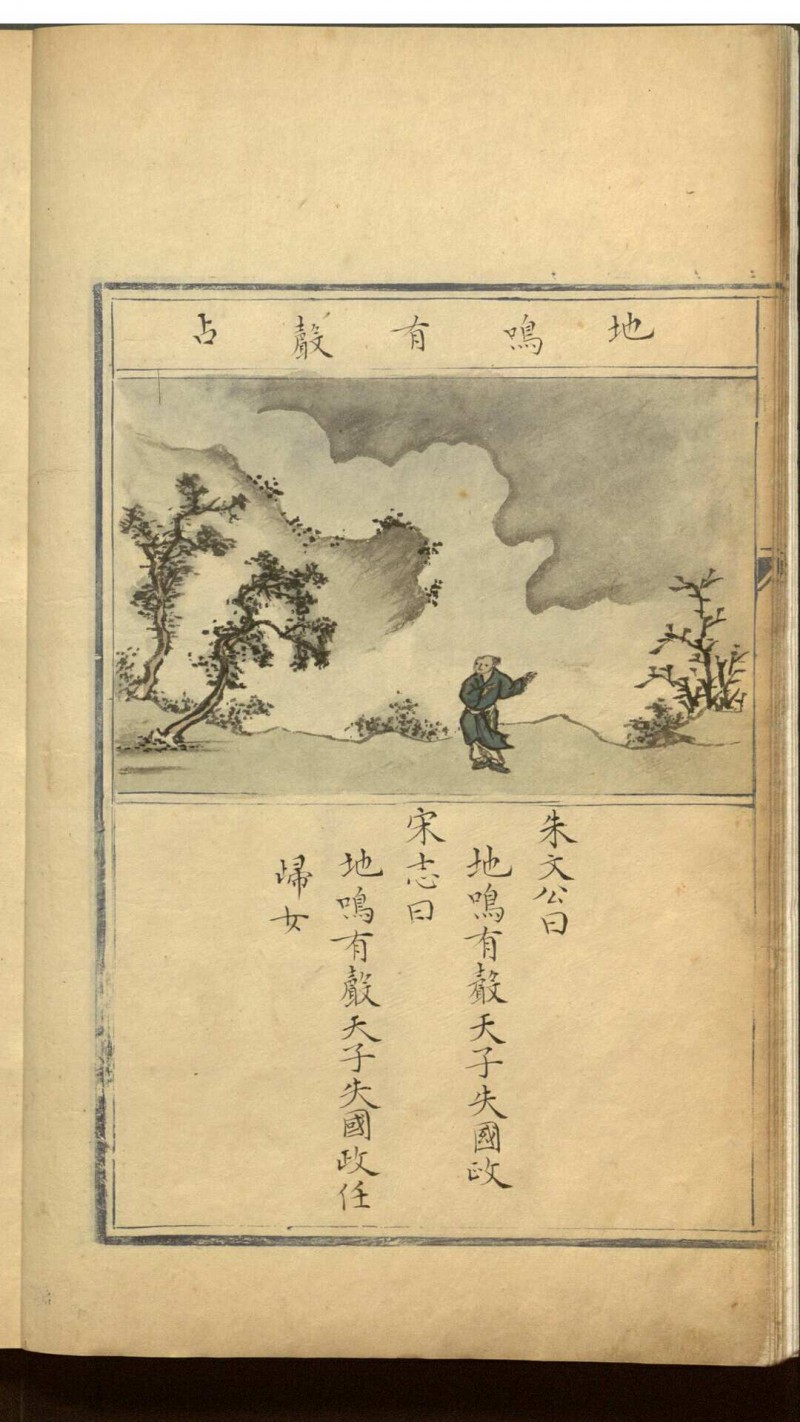 地鳴有聲占
朱文公曰
地鳴有聲天子失國政
宋志曰
地鳴有聲天子失國政任
歸女